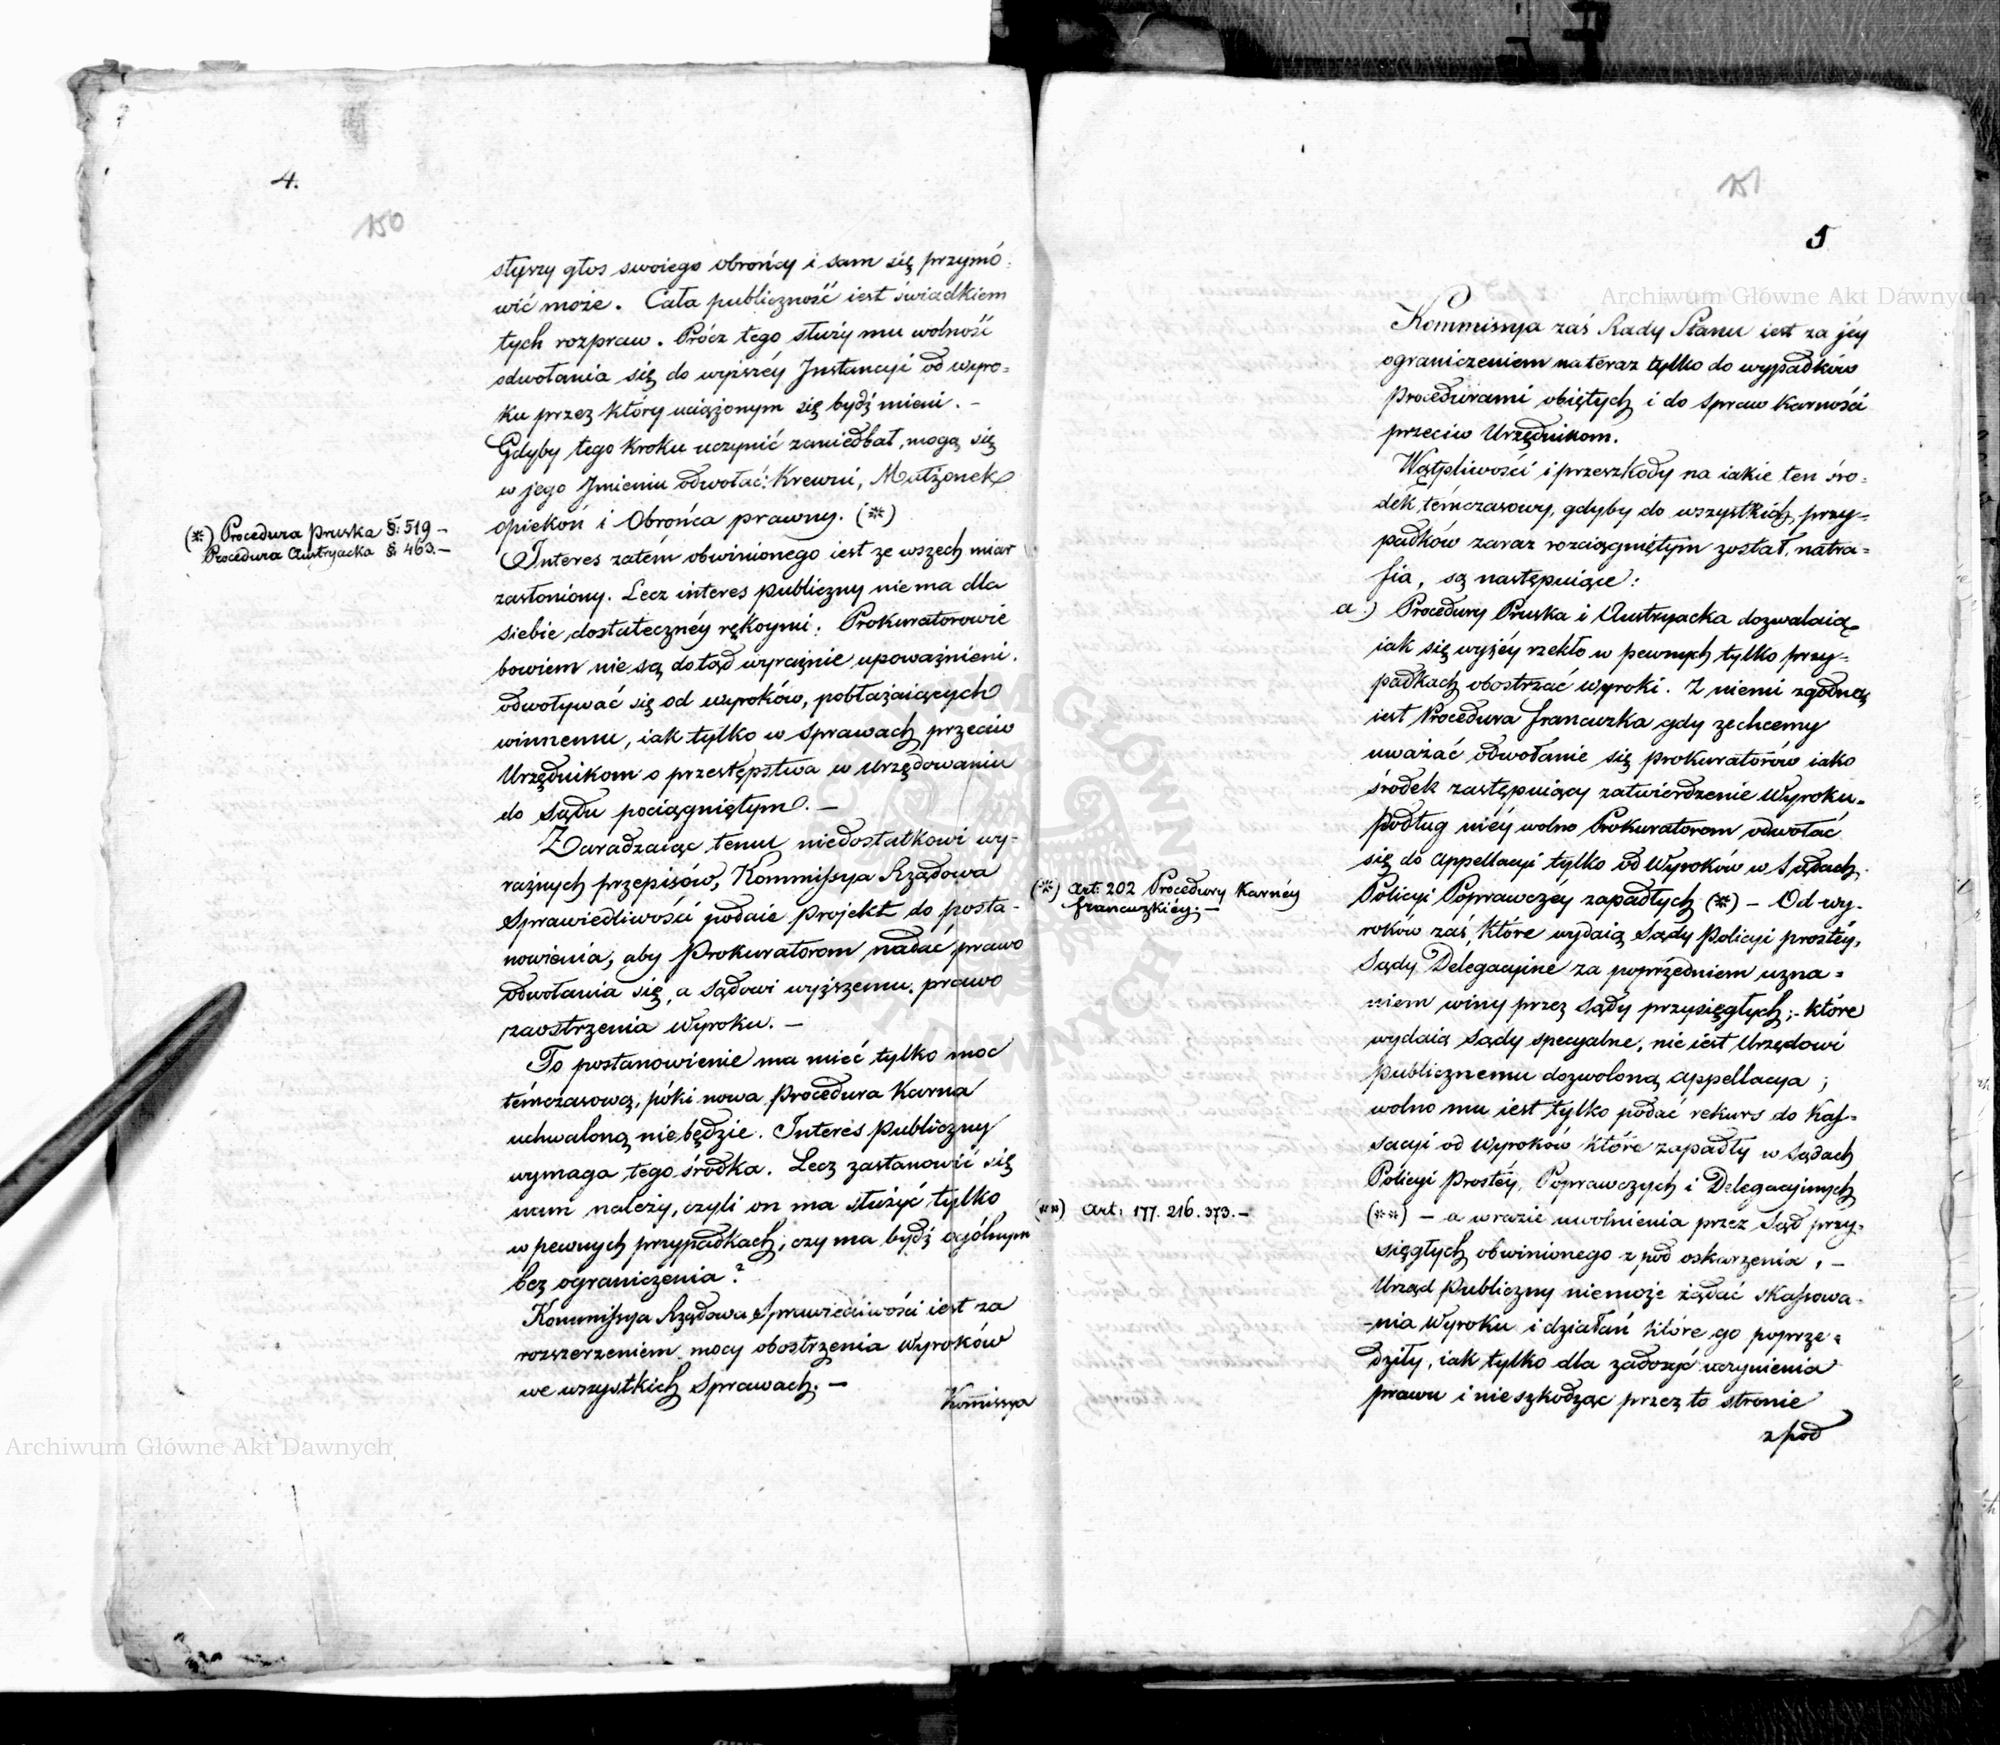 4.
150
słyszy głos swoiego obrońcy i sam się przymó=
wić może. Cała publiczność iest świadkiem
tych rozpraw. Prócz tego służy mu wolność
odwołania się do wyższéy Instancyi od wyro=
ku przez który uciążonym się bydź mieni. -
Gdyby tego kroku uczynić zaniedbał, mogą się
w jego Imieniu odwołać: Krewni, Małżonek
opiekón i Obrońca prawny. (*)
(*) Procedura Pruska §: 519 -
Procedura Austryacka § 463. -
Interes zatém obwinionego iest ze wszech miar
zasłoniony. Lecz interes publiczny nie ma dla
siebie dostatecznéy rękoymi: Prokuratorowie
bowiem nie są dotąd wyraźnie upoważnieni
odwoływać się od wyroków, pobłażaiących
winnemu, iak tylko w sprawach przeciw
Urzędnikom o przestępstwa w urzędowaniu
do Sądu pociągniętym. -
Zaradzaiąc temu niedostatkowi wy-
raźnych przepisów, Kommissya Rządowa
Sprawiedliwości podaie projekt do posta-
nowienia, aby Prokuratorom nadać prawo
odwołania się, a Sądowi wyższemu, prawo
zaostrzenia Wyroku. -
To postanowienie ma mieć tylko moc
témczasową, póki nowa Procedura Karna
uchwaloną nie będzie. Interes publiczny
wymaga tego środka. Lecz zastanowić się
nam należy, czyli on ma służyć tylko
w pewnych przypadkach, czy ma bydź ogólnym
bez ograniczenia?
Kommissya Rządowa Sprawiedliwości iest za
rozszerzeniem mocy obostrzenia Wyroków
we wszystkich Sprawach. -
Kommissya
151
5
Kommissya zaś Rady Stanu iest za jéy
ograniczeniem na teraz tylko do wypadków
Procedurami obiętych i do Spraw karności
przeciw Urzędnikom.
Wątpliwości i przeszkody na iakie ten śro=
dek témczasowy, gdyby do wszystkich przy=
padków zaraz rozciągniętym został, natra=
fia, są następuiące:
a.) Procedury Pruska i Austryacka dozwalaią
iak się wyżéy rzekło w pewnych tylko przy=
padkach obostrzać wyroki. Z niemi zgodną
iest Procedura francuzka gdy zechcemy
uważać odwołanie się prokuratorów iako
środek zastępuiący zatwierdzenie Wyroku.
Podług niéy wolno Prokuratorom odwołać
się do appellacyi tylko od Wyroków w Sądach
Policyi Poprawczéy zapadłych (*) - Od wy-
(*) Art: 202 Procedury Karnéy
francuzkiéy. -
roków zaś, które wydaią Sądy Policyi prostéy,
Sądy Delegacyine za poprzedniem uzna=
niem winy przez Sądy przysięgłych; - które
wydaią Sądy specyalne, nie iest Urzędowi
publicznemu dozwoloną appellacya;
wolno mu iest tylko podać rekurs do Kas-
sacyi od Wyroków które zapadły w Sądach
Policyi Prostéy, Poprawczych i Delegacyinych
(**) Art: 177. 216. 373. -
(**) - a w razie uwolnienia przez Sąd przy-
sięgłych obwinionego z pod oskarzenia, -
Urząd Publiczny niemoże żądać skassowa-
-nia Wyroku i działań które go poprze=
dziły, iak tylko dla zadosyć uczynienia
prawu i nie szkodząc przez to stronie
z pod
Archiwum Główne Akt Dawnych
Archiwum Główne Akt Dawnych
ARCHIWUM GŁÓWNE AKT DAWNYCH